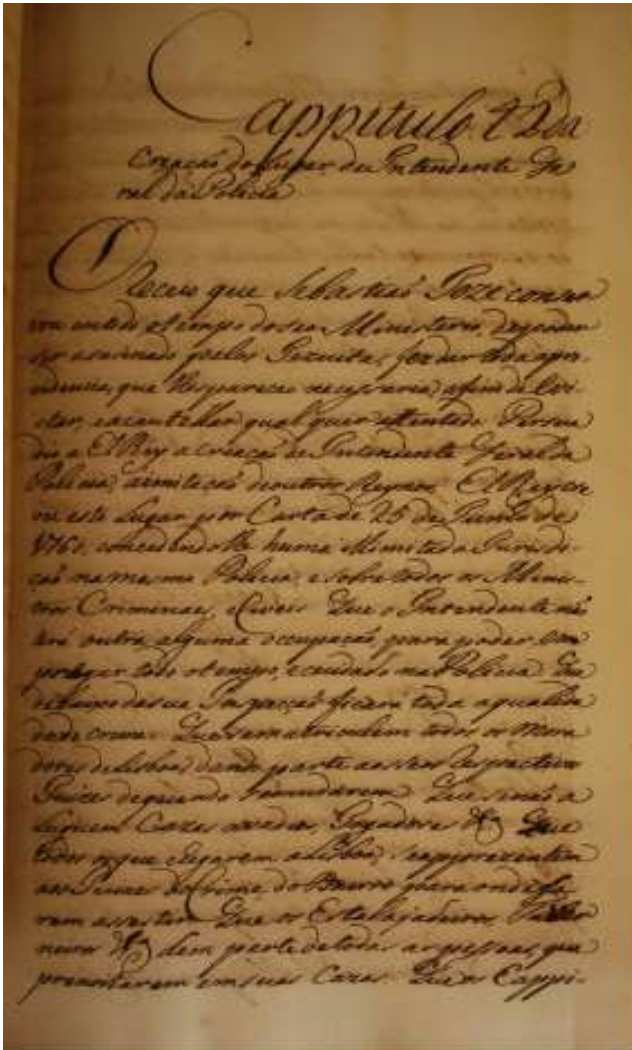 Cappitulo 42 da
Creacaõ do Lugar de Intendente Ge
ral da Policia
O Receio que Sebastiaõ Joze conser
vou em todo o tempo do seu Ministerio, de poder
ser asacinado pelos Gezuitas, fez dar toda a pro-
videncia, que lhe pareceu necessaria, afim de Evi-
tar, e acautellar qual quer attentado. Persua
dio a El Rey a creaçaõ de Intendente Geral da
Policia, aimitaçaõ de outros Reynos. El Rey cre
ou este Lugar por Carta de 25 de Junho de
1760, concedendo lhe huma ilimitada Jurisdi-
çaõ na mesma Policia, e sobre todos os Minis-
tros Criminaes, e Civeis. Que o Intendente naõ
terá outra alguma occupaçaõ, para poder em
pregar todo o tempo, e cuidado na Policia. Que
debaixo da sua Inspecçaõ ficará toda a qualida
de de crime. Que se matriculem todos os Mora
dores de Lisboa, dando parte aos seos respectivos
Juizes de quando se mudarem. Que se naõ a
luguem Cazas a vadios, Jogadores &ª Que
todos os que chegarem a Lisboa, se apprezentem
aos Juizes do Crime do Bairro para onde fo
rem assestir. Que os Estalajadeiros, Taver
neiros &ª dem parte de todas as pessoas, que
pernoitarem em suas Cazas. Que os Cappi-